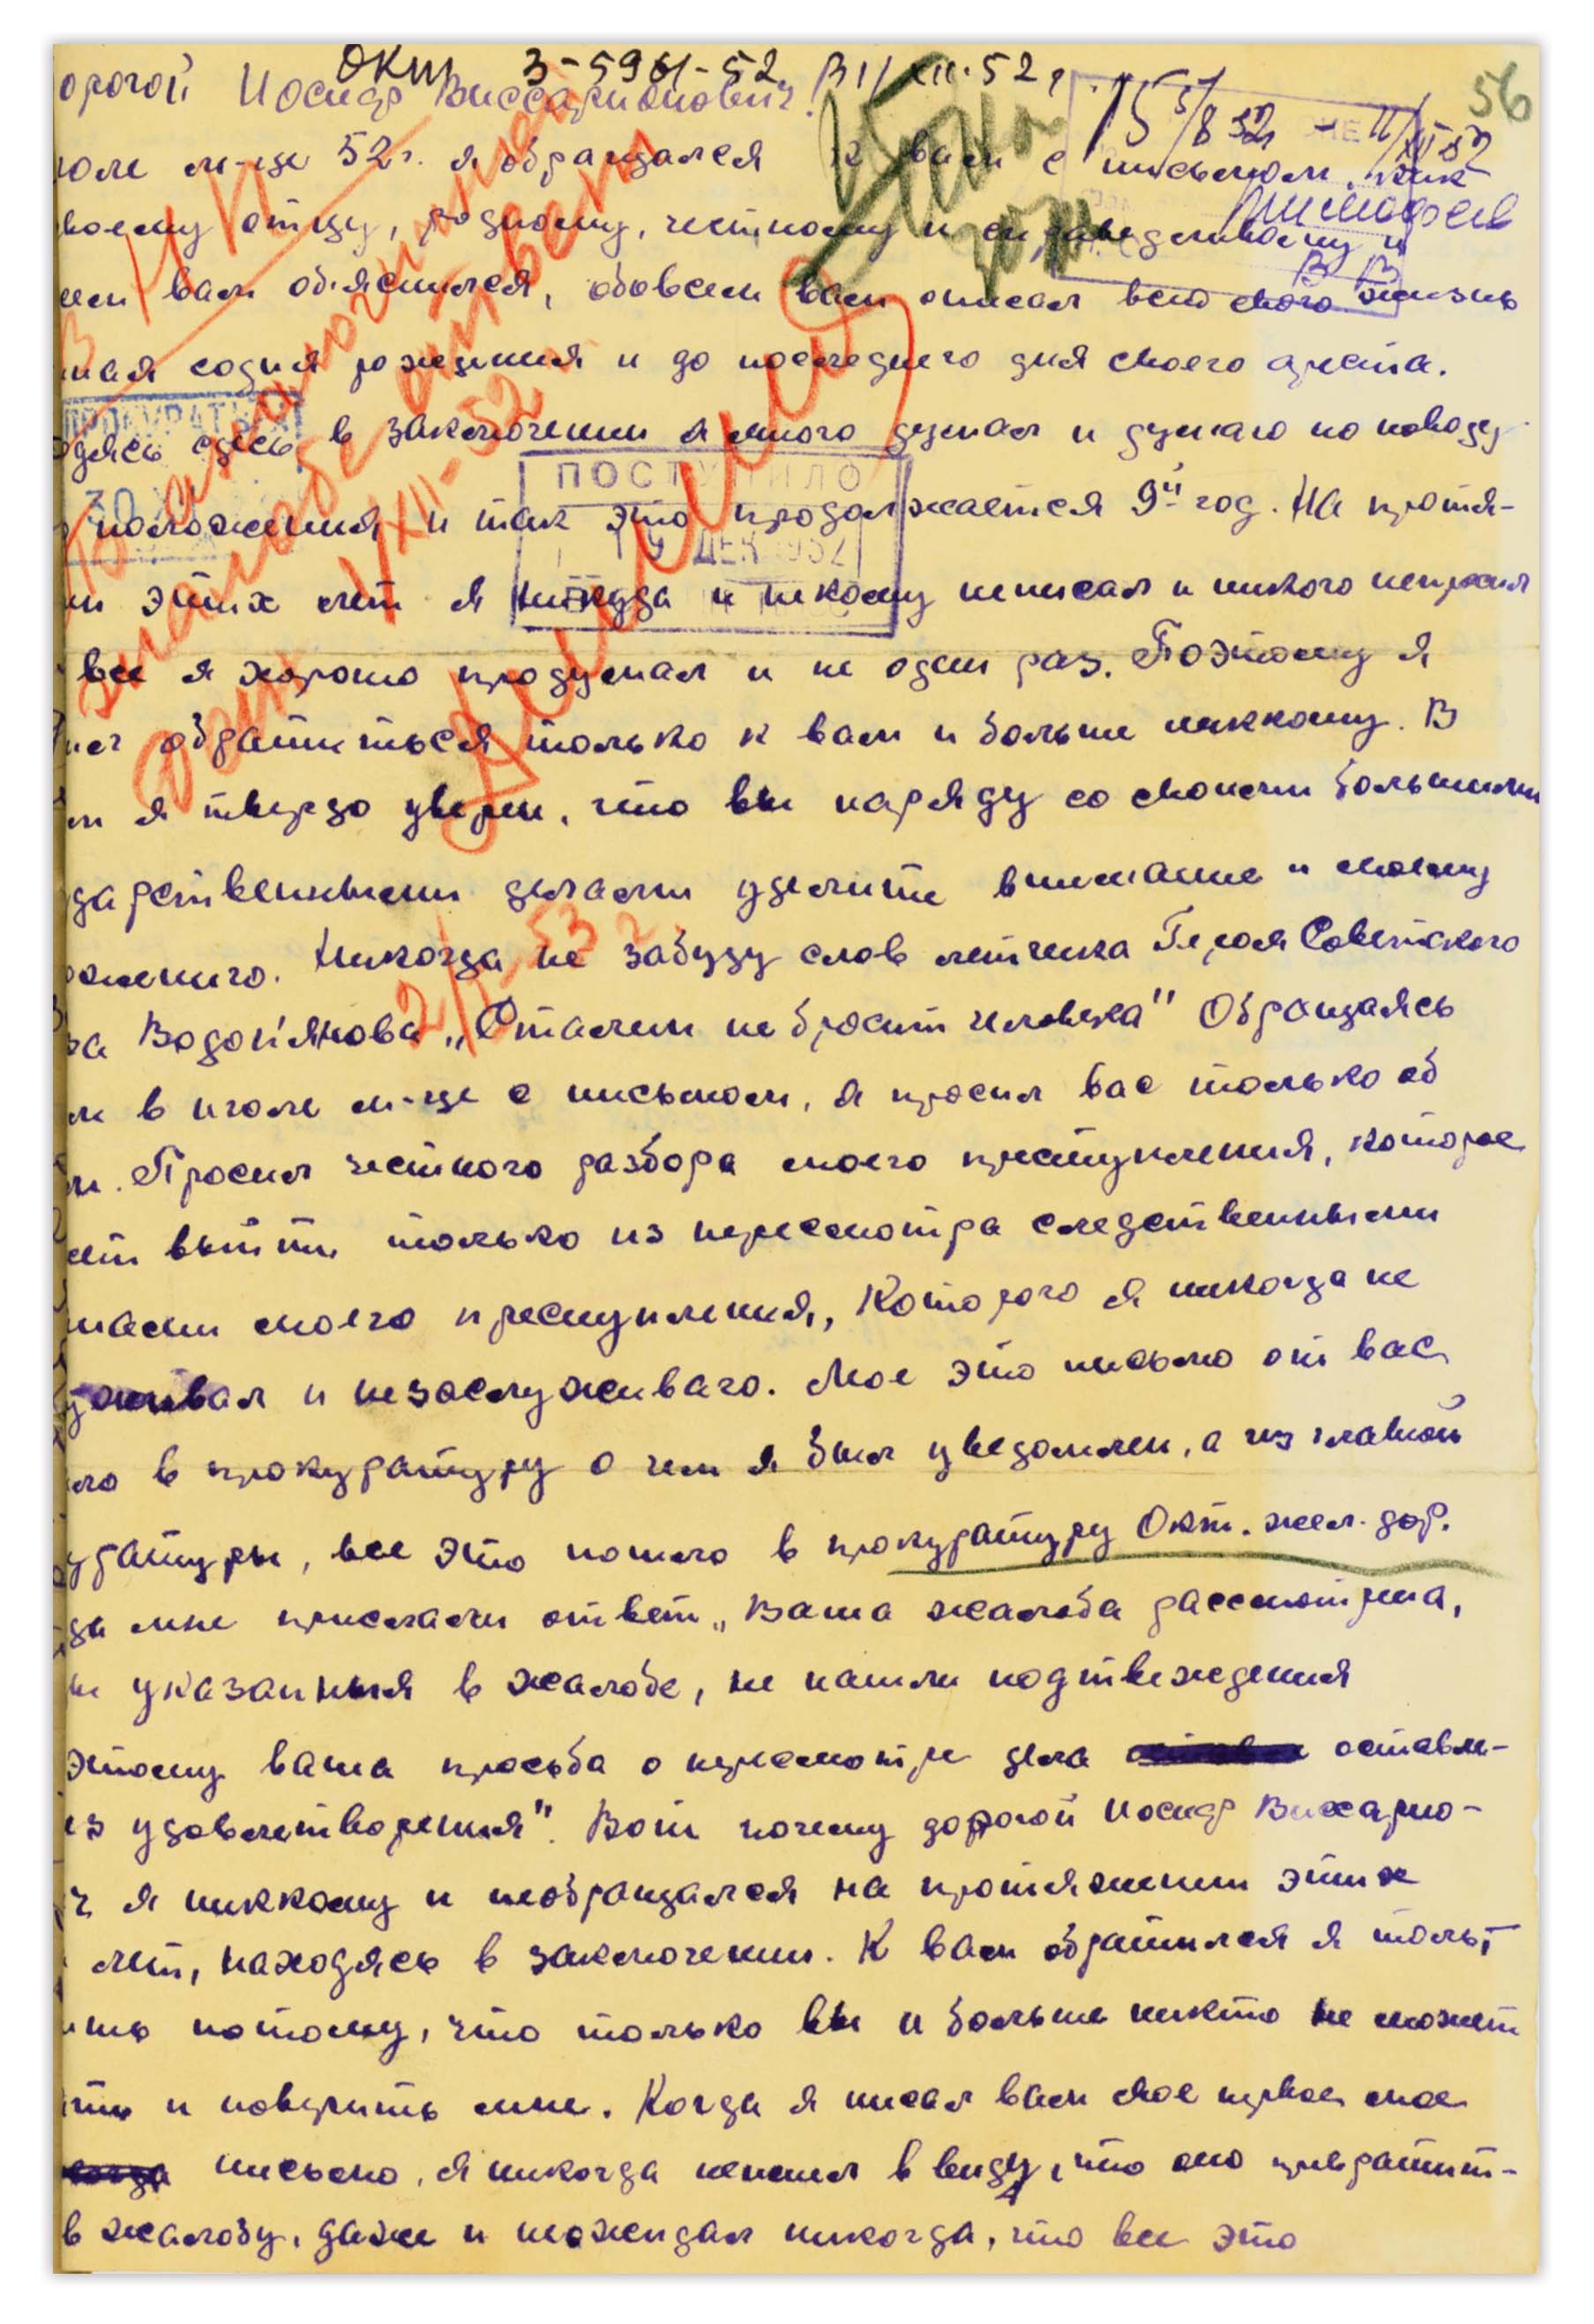 Окт 3-5961-52
XII.52г.
56
орогой Иосиф Виссарионович!
юле м-це 52 г. я обращался к вам с письмом, как
воему отцу, родному, честному и справедливому и
сем вам обяснился, обовсем вам описал всю свою жизнь
иная содня рождения и до последнего дня своего ареста.
одясь сдесь в заключении я много думал и думаю по поводу
положения и так это продолжается 9й год. На протя-
ии этих лет я никуда и никому неписал и никого непросил
все я хорошо продумал и не один раз. Поэтому я
шел обратиться только к вам и больше никкому. В
м я твердо уверен, что вы наряду со своими большими
ударственными делами уделите внимание и моему
ожению. Никогда не забуду слов летчика Героя Советского
за Водопьянова „Сталин не бросит человека" Обращаясь
м в июле м-це с письмом, я просил вас только об
м. Просил честного разбора моего преступления, которое
ет вытти только из пересмотра следственными
нами моего преступления, Которого я никогда не
уживал и незаслуживаю. Мое это письмо от вас
ло в прокуратуру о чем я был уведомлен, а из главной
уратуры, все это пошло в прокуратуру Окт. жел. дор.
да мне прислали ответ „Ваша жалоба рассмотрена,
ы указанныя в жалобе, не нашли подтвеждения
этому ваша прозьба о пересмотре дела оставле-
ез удовлетворения". Вот почему дорогой Иосиф Виссарио-
ч я никкому и необращался на протяжении этих
лет, находясь в заключении. К вам обратился я толь,
ишь потому, что только вы и больше никто не может
ять и поверить мне. Когда я писал вам свое первое мое
письмо, я никогда неимел в виду, что оно превратит-
в жалобу, даже и неожидал никогда, что все это
ПРОКУРАТУРА
ПОСТУПИЛО
19 ДЕК 1952